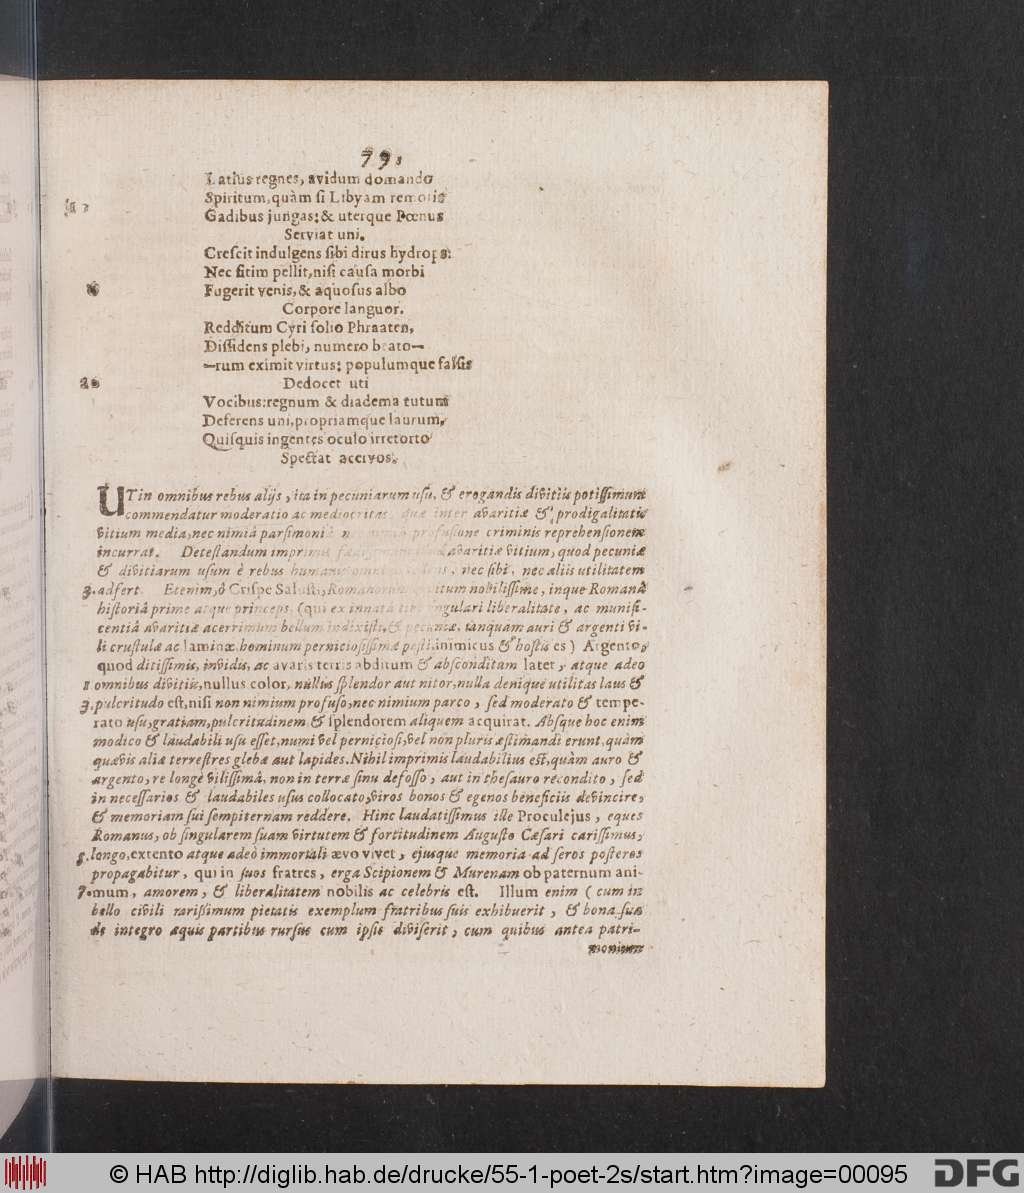 79.
Latius regnes, avidum domando
Spiritum, quàm si Libyam remotis
Gadibus jungas: & uterque Pœnus
Serviat uni.
Crescit indulgens sibi dirus hydrops:
Nec sitim pellit, nisi causa morbi
Fugerit venis, & aquosus albo
Corpore languor.
Redditum Cyri solio Phraaten,
Dissidens plebi, numero beato-
-rum eximit virtus: populumque falsis
20 Dedocet uti
Vocibus: regnum & diadema tutum
Deferens uni, propriamque laurum,
Quisquis ingentes oculo irretorto
Spectat acervos.
UT in omnibus rebus alijs, ita in pecuniarum usu, & erogandis divitiis potissimum
commendatur moderatio ac mediocritas, quæ inter avaritiæ & prodigalitatis
vitium media, nec nimiâ parsimoniâ profusione criminis reprehensionem
incurrat. Detestandum imprimis avaritiæ vitium, quod pecuniæ
& divitiarum usum è rebus nec sibi, nec aliis utilitatem
3. adfert. Etenim, ô Crispe Salusti, Romanorum nobilissime, inque Romanâ
historiâ prime atque princeps, (qui ex innatâ tibi singulari liberalitate, ac munifi-
centiâ avaritiæ acerrimum bellum indixisti, & pecuniæ, tanquam auri & argenti vi-
li crustulæ ac laminæ, hominum perniciosissimæ pesti inimicus & hostis es) Argento,
quod ditissimis, invidis, ac avaris terris abditum & absconditam latet, atque adeo
1 omnibus divitiis, nullus color, nullus splendor aut nitor, nulla denique utilitas laus &
3. pulcritudo est, nisi non nimium profuso, nec nimium parco, sed moderato & tempe-
rato usu, gratiam, pulcritudinem & splendorem aliquem acquirat. Absque hoc enim
modico & laudabili usu esset, numi vel perniciosi, vel non pluris æstimandi erunt, quàm
quævis aliæ terrestres glebæ aut lapides. Nihil imprimis laudabilius est, quàm auro &
argento, re longè vilissimâ, non in terræ sinu defosso, aut in thesauro recondito, sed
in necessarios & laudabiles usus collocato, viros bonos & egenos beneficiis devincire,
& memoriam sui sempiternam reddere. Hinc laudatissimus ille Proculejus, eques
Romanus, ob singularem suam virtutem & fortitudinem Augusto Cæsari carissimus,
5. longo, extento atque adeò immortali ævo vivet, ejusque memoria ad seros posteros
propagabitur, qui in suos fratres, erga Scipionem & Murenam ob paternum ani-
7. mum, amorem, & liberalitatem nobilis ac celebris est. Illum enim (cum in
bello civili rarissimum pietatis exemplum fratribus suis exhibuerit, & bona sua
de integro æquis partibus rursus cum ipsis diviserit, cum quibus antea patri-
monium
© HAB http://diglib.hab.de/drucke/55-1-poet-2s/start.htm?image=00095
DFG